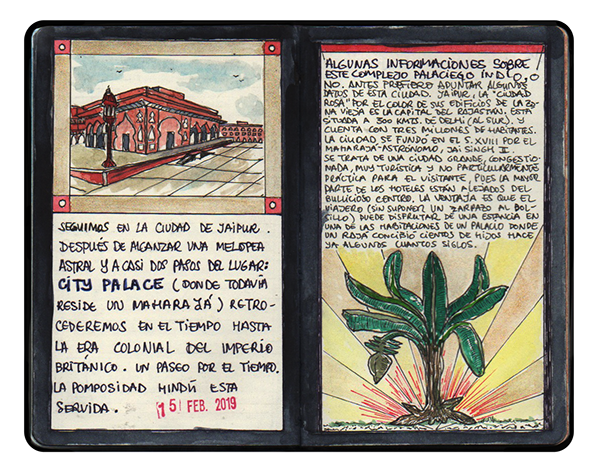 SEGUIMOS EN LA CIUDAD DE JAIPUR.
DESPUÉS DE ALCANZAR UNA MELOPEA
ASTRAL Y A CASI DOS PASOS DEL LUGAR:
CITY PALACE (DONDE TODAVÍA
RESIDE UN MAHARAJÁ) RETRO-
CEDEREMOS EN EL TIEMPO HASTA
LA ERA COLONIAL DEL IMPERIO
BRITÁNICO. UN PASEO POR EL TIEMPO.
LA POMPOSIDAD HINDÚ ESTA
SERVIDA.
15 FEB. 2019
ALGUNAS INFORMACIONES SOBRE
ESTE COMPLEJO PALACIEGO INDIO, O
NO. ANTES PREFIERO APUNTAR ALGUNOS
DATOS DE ESTA CIUDAD. JAIPUR, LA "CIUDAD
ROSA" POR EL COLOR DE SUS EDIFICIOS DE LA ZO-
NA VIEJA ES LA CAPITAL DEL RAJASTAN. ESTA
SITUADA A 300 KMTS. DE DELHI (AL SUR). Y
CUENTA CON TRES MILLONES DE HABITANTES.
LA CIUDAD, SE FUNDO EN EL S. XVIII POR EL
MAHARAJÁ ASTRÓNOMO, JAI SINGH II.
SE TRATA DE UNA CIUDAD GRANDE, CONGESTIO-
NADA, MUY TURÍSTICA Y NO PARTICULARMENTE
PRÁCTICA PARA EL VISITANTE, PUES LA MAYOR
PARTE DE LOS HOTELES ESTÁN ALEJADOS DEL
BULLICIOSO CENTRO. LA VENTAJA ES QUE EL
VIAJERO (SIN SUPONER UN ZARPAZO AL BOL-
SILLO) PUEDE DISFRUTAR DE UNA ESTANCIA EN
UNA DE LAS HABITACIONES DE UN PALACIO DONDE
UN RAJÁ CONCIBIÓ CIENTOS DE HIJOS HACE
YA ALGUNOS CUANTOS SIGLOS.